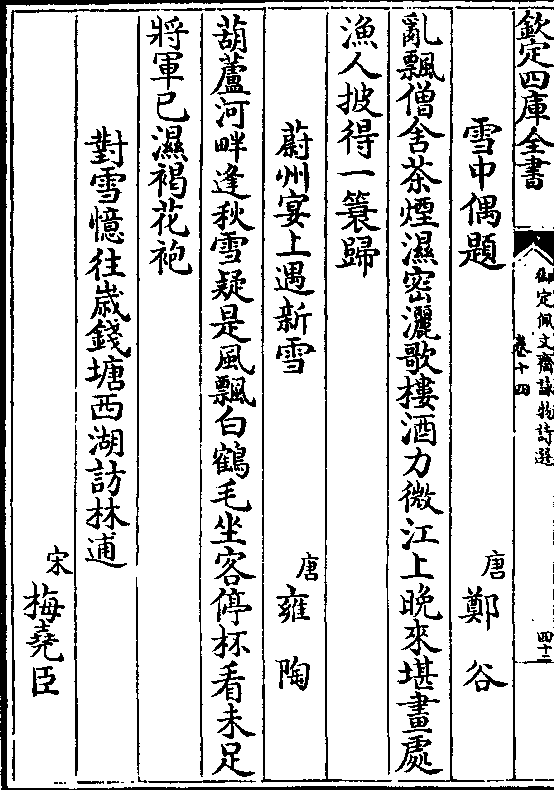 欽定四庫全書
御定佩文齋詠物詩選
卷十四
四十二
雪中偶題
唐 鄭谷
亂飄僧舍茶煙濕密灑歌樓酒力微江上晚來堪畫處
漁人披得一簑歸
蔚州宴上遇新雪
唐 雍陶
葫蘆河畔逢秋雪疑是風飄白鶴毛坐客停杯看未足
將軍已濕褐花袍
對雪憶往歲錢塘西湖訪林逋
宋 梅堯臣